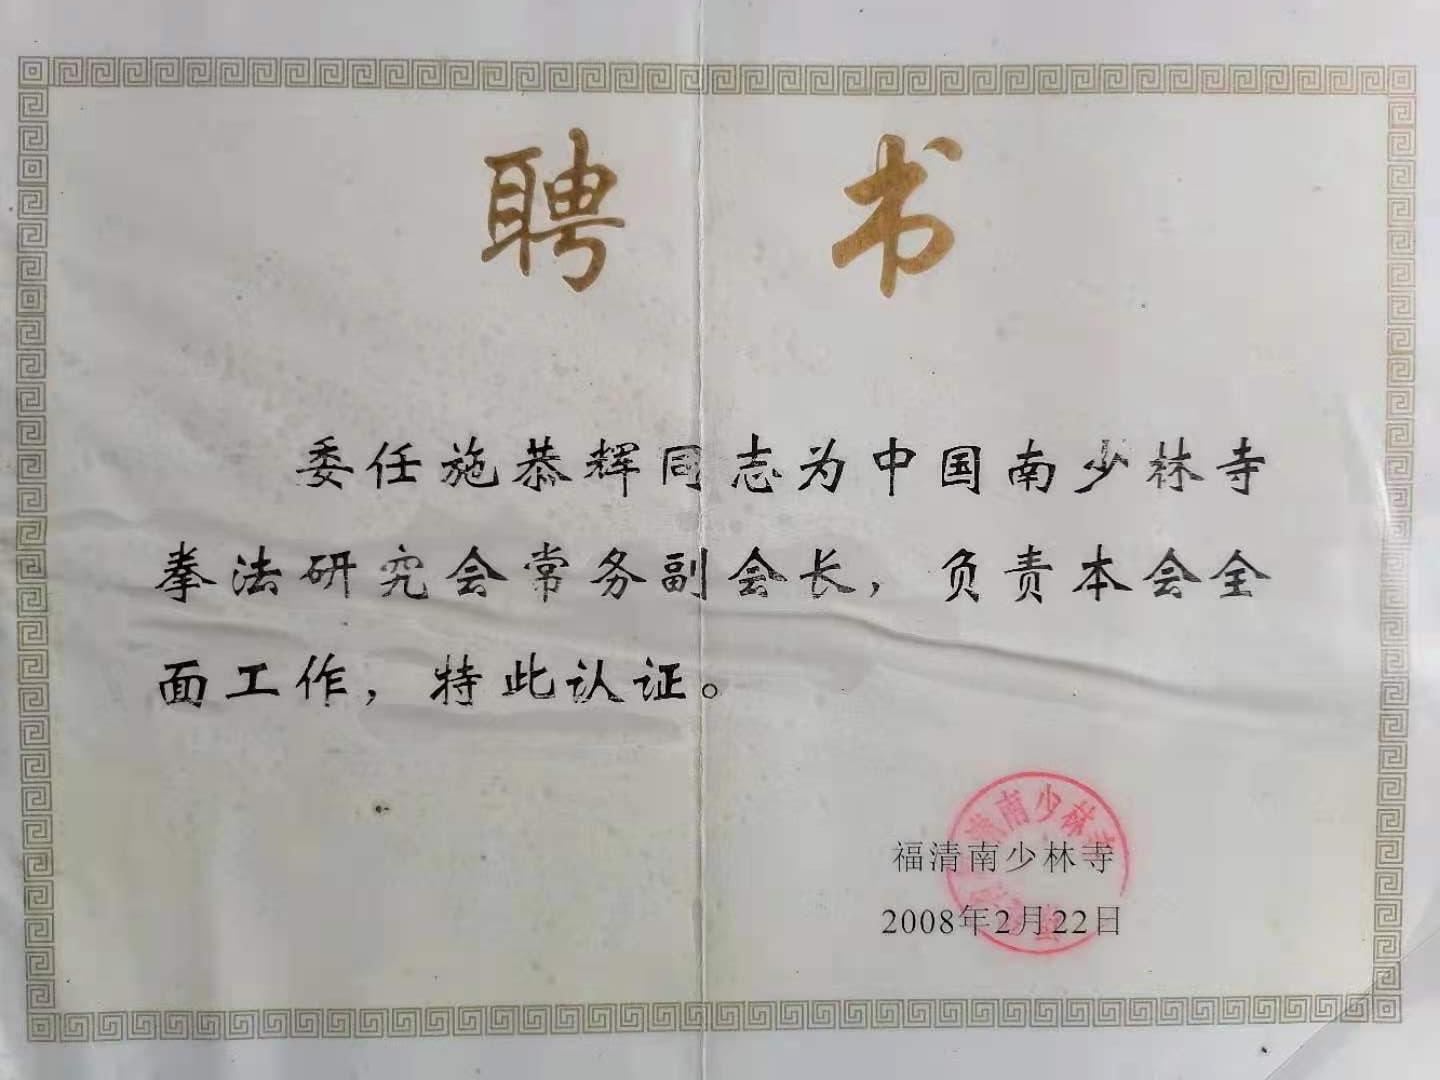 聘书
委任施恭辉同志为中国南少林寺
拳法研究会常务副会长，负责本会全
面工作，特此认证。
南少林寺
福清南少林寺
2008年2月22日